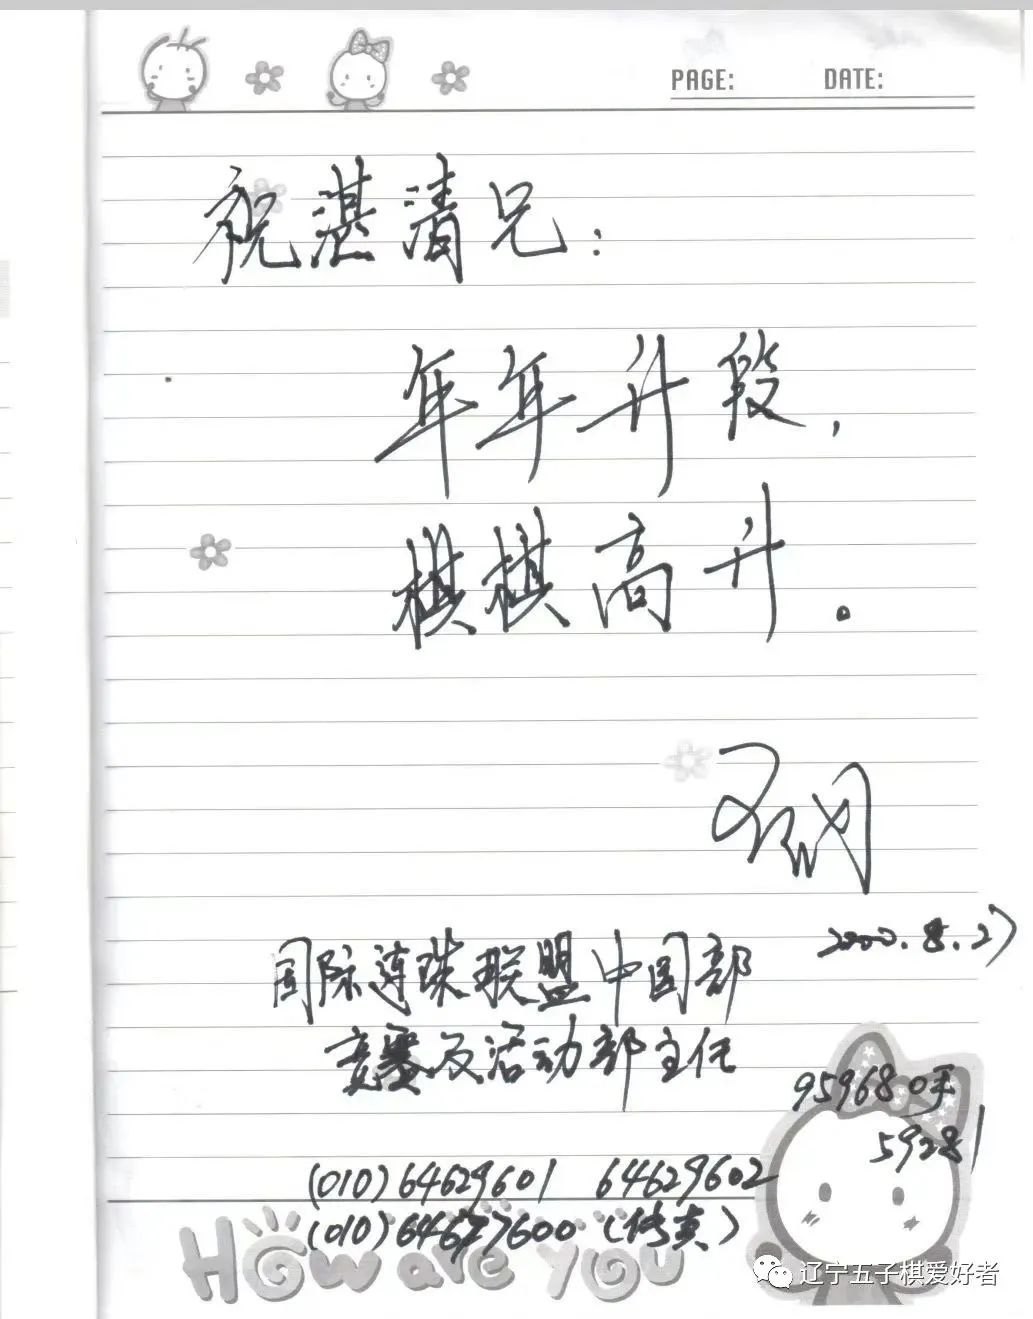 PAGE: DATE:
祝湛清兄：
年年升段，
棋棋高升。
2000.8.27
国际连珠联盟中国部
竞赛及活动部主任
959680呼
59281
(010)64629601 64629602
(010)64627600 (传真)
HOW are YOU
辽宁五子棋爱好者